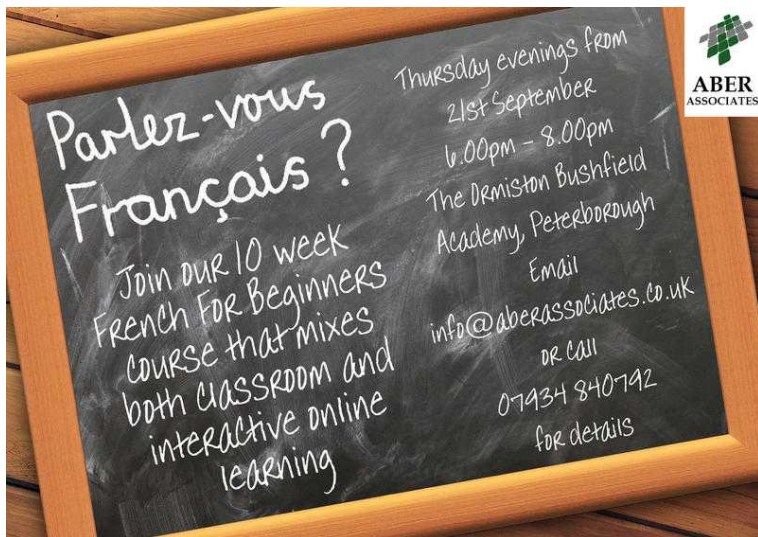 Parlez-vous
Français ?
Join our 10 week
French For Beginners
course that mixes
both classroom and
interactive online
learning
Thursday evenings from
21st September
6.00pm - 8.00pm
The Ormiston Bushfield
Academy, Peterborough
Email
info@aberassociates.co.uk
or call
07934 840792
for details
ABER
ASSOCIATES